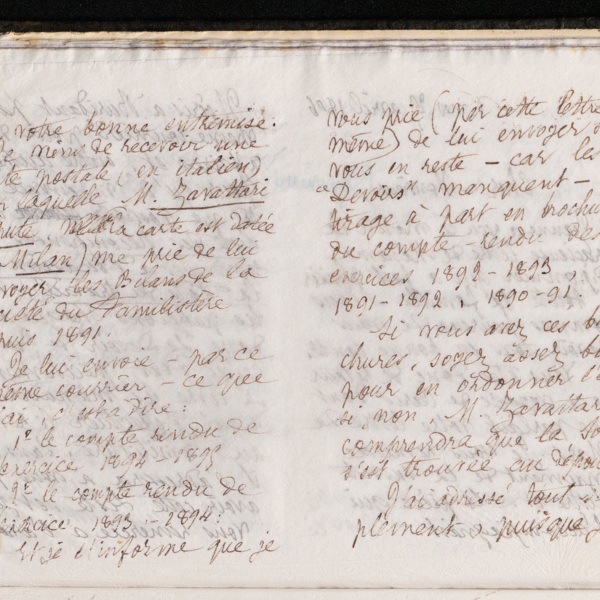 votre bonne entremise.
viens de recevoir une
te postale (en italien)
laquelle M. Zavattari
la carte est datée
Milan) me prie de lui
voyer les Bilans de la
ciété du Familistère
puis 1891.
Je lui envoie – par ce
même courrier – ce que
j'ai, c'est à dire:
1º le compte rendu de
exercice 1894 – 1895
2º le compte rendu de
exercice 1893 – 1894.
Et je l'informe que je
vous prie (par cette lettre
même) de lui envoyer
vous en reste – car les
"Devoirs" manquent –
tirage à part en brochu
du compte-rendu des
exercices 1892-1893
1891-1892, 1890-91.
Si vous avez ces bro
chures, soyez assez bo
pour en ordonner l'e
si non, M. Zavattar
comprendra que la So
s'est trouvée au dépou
J'ai adressé tout s
plement, puisque j